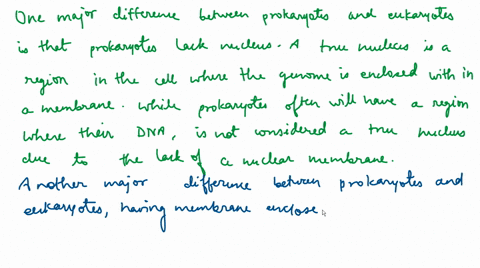 One major difference between prokaryotes and eukaryotes
is that prokaryotes lack nucleus. A true nucleus is a
region in the cell where the genome is enclosed with in
a membrane. While prokaryotes often will have a region
where their DNA, is not considered a true nucleus
due to the lack of a nuclear membrane.
Another major difference between prokaryotes and
eukaryotes, having membrane enclose